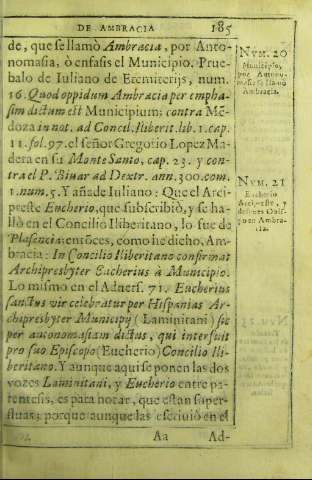 DE AMBRACIA 185
de, que se llamò Ambracia, por Anto-
nomasia, ò enfasis el Municipio. Prue-
balo de Iuliano de Eremiterijs, num.
16. Quod oppidum Ambracia per empha-
sim dictum est Municipium; contra Mẽ-
doza in not. ad Concil. Iliberit. lib. 1. cap.
11. fol. 97. el señor Gregorio Lopez Ma-
dera en su Monte Santo, cap. 23. y con-
tra el P. Bivar ad Dextr. ann. 300. com.
1. num. 5. Y añade Iuliano: Que el Arci-
preste Eucherio, que subscribiò, y se ha-
llò en el Concilio Iliberitano, lo fue de
Plasencia; entõces, como he dicho, Am-
bracia: In Concilio Iliberitano confirmat
Archipresbyter Eucherius à Municipio.
Lo mismo en el Advers. 71. Eucherius
sanctus vir celebratur per Hispanias Ar-
chipresbyter Municipij (Laminitani) sic
per autonomasiam dictus, qui interfuit
pro suo Episcopo (Eucherio) Concilio Ili-
beritano. Y aunque aqui se ponen las dos
vozes Laminitani, y Eucherio entre pa-
rentesis, es para notar, que estan super-
fluas; porque aunque las escriviò en el
Aa Ad-
NVM. 20
Municipio,
por Antono-
masia se llamò
Ambracia.
NVM. 21
Eucherio
Arcipreste, y